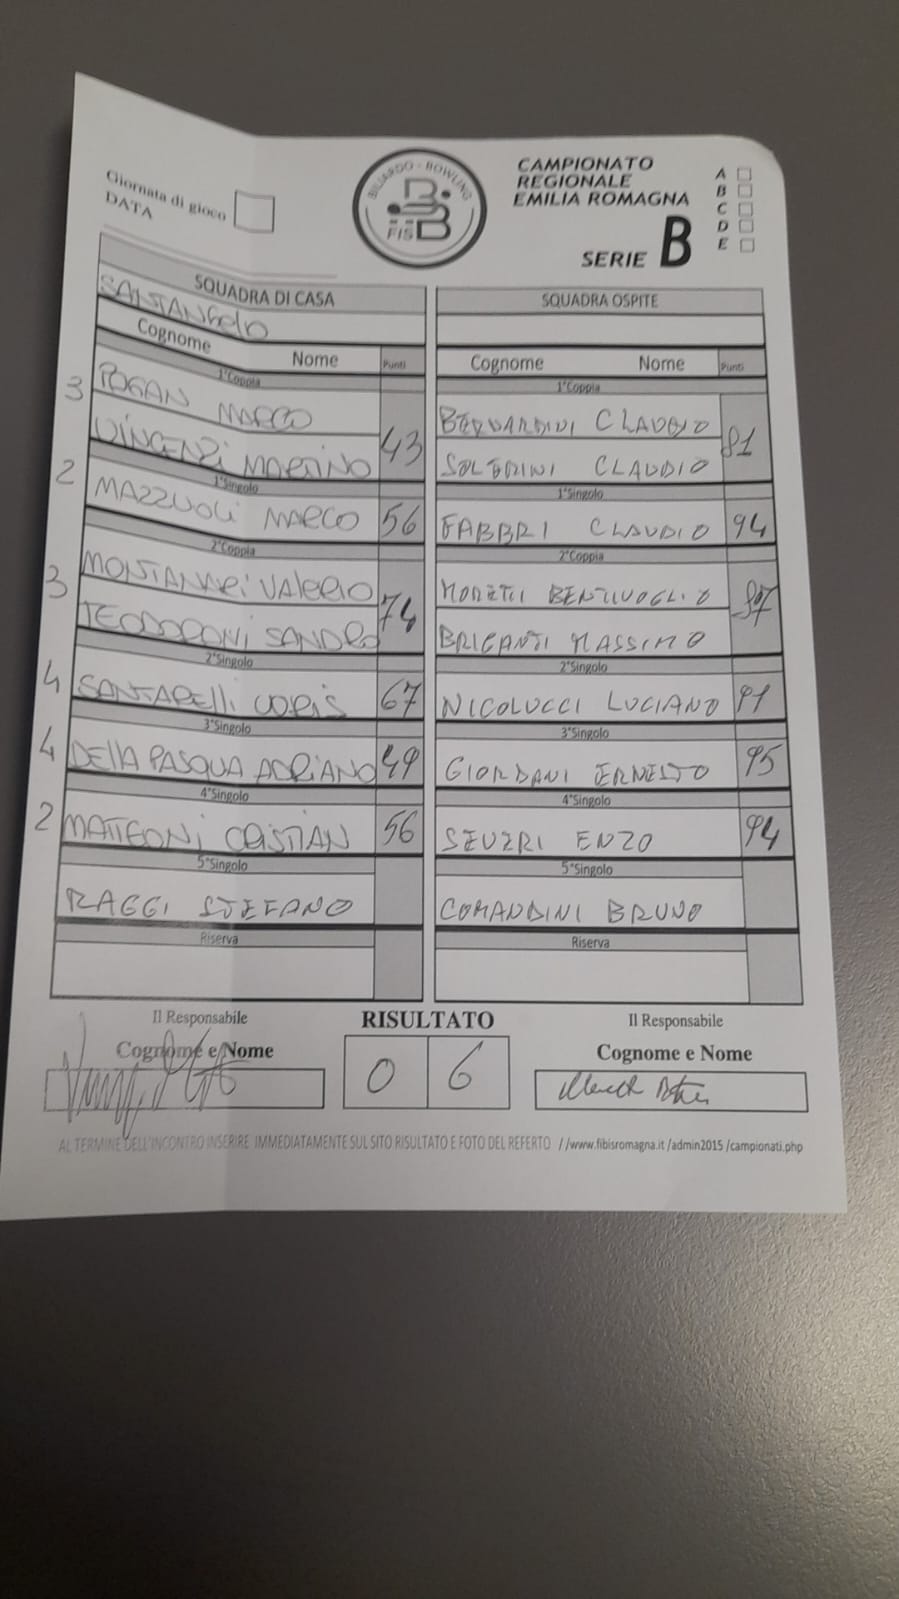 Giornata di gioco
DATA
BILIARDO - BOWLING
FIS
CAMPIONATO
REGIONALE
EMILIA ROMAGNA
SERIE B
A
B
C
D
E
SQUADRA DI CASA
SANTANGELO
Cognome Nome Punti
1°Coppia
3
POGAN MARCO
VINCENZI MARTINO 43
1°Singolo
2
MAZZUOLI MARCO 56
2°Coppia
3
MONTANARI VALERIO
TEODORONI SANDRO 74
2°Singolo
4 SANTARELLI LORIS 67
3°Singolo
4 DELLA PASQUA ADRIANO 49
4°Singolo
2 MATTEONI CRISTIAN 56
5°Singolo
RAGGI STEFANO
Riserva
SQUADRA OSPITE
Cognome Nome Punti
1°Coppia
BERNARDINI CLAUDIO
SOLFRINI CLAUDIO 81
1°Singolo
FABBRI CLAUDIO 94
2°Coppia
MORETTI BENTIVOGLIO
BRIGANTI MASSIMO
2°Singolo
NICOLUCCI LUCIANO 91
3°Singolo
GIORDANI ERNESTO 95
4°Singolo
SEVERI ENZO 94
5°Singolo
COMANDINI BRUNO
Riserva
Il Responsabile
Cognome e Nome
RISULTATO
0 6
Il Responsabile
Cognome e Nome
AL TERMINE DELL'INCONTRO INSERIRE IMMEDIATAMENTE SUL SITO RISULTATO E FOTO DEL REFERTO //www.fibisromagna.it /admin2015 /campionati.php